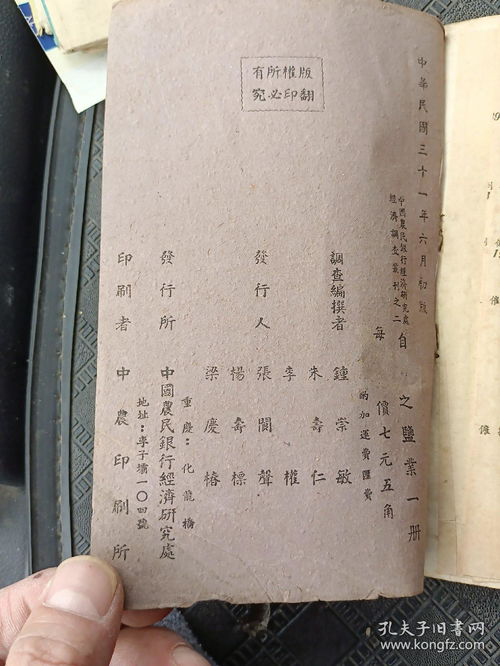 版權所有
翻印必究
中華民國三十一年六月初版
中國農民銀行經濟研究處
經濟調查叢刊之二
自 之鹽業一册
每 價七元五角
酌加運費匯費
調查編撰者 鍾崇敏
朱壽仁
李權
發行人 張閬聲
楊壽標
梁慶椿
重慶:化龍橋
發行所 中國農民銀行經濟研究處
地址:李子壩一〇四號
印刷者 中農印刷所
孔夫子旧书网
kongfz.com